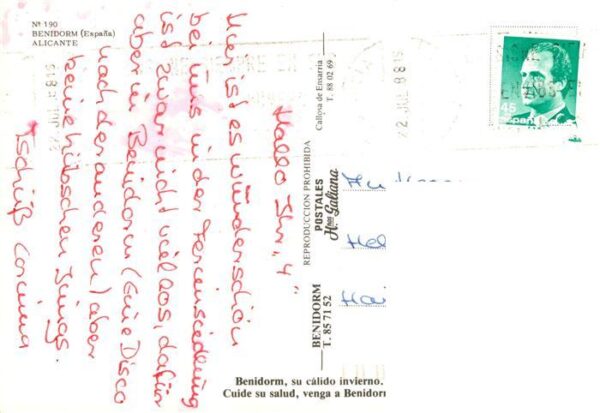 Nº 190
BENIDORM (España)
ALICANTE
Hallo Ihr „4"
Hier ist es wunderschön
bei uns in der Feriensiedlung
ist zwar nicht viel los, dafür
aber in Benidorm (Eine Disco
nach der anderen) aber
keine hübschen Jungs.
Tschüß Corinna
Callosa de Ensarria
T. 88 02 69
REPRODUCCION PROHIBIDA
POSTALES
Hnos Galiana
BENIDORM
T. 85 71 52
45
España
22 JUL 88
Hel
Benidorm, su cálido invierno.
Cuide su salud, venga a Benidorm